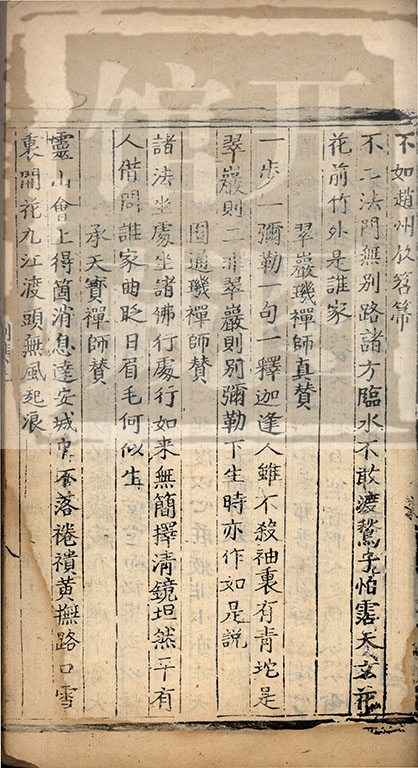 不如趙州放笤箒
不二法門無別路諸方臨水不敢渡鶖子怕霑天女花
花前竹外是誰家
翠巖璣禪師真賛
一步一彌勒一句一釋迦逢人雖不殺袖裏有青虵是
翠巖則二非翠巖則別彌勒下生時亦作如是說
圓通璣禪師賛
諸法坐處坐諸佛行處行如来無簡擇清鏡坦然平有
人借問誰家曲眨日眉毛何似生
承天寳禪師賛
靈山會上得箇消息達安城中不落捲襀黄撫路口雪
裏開花九江渡頭無風起浪